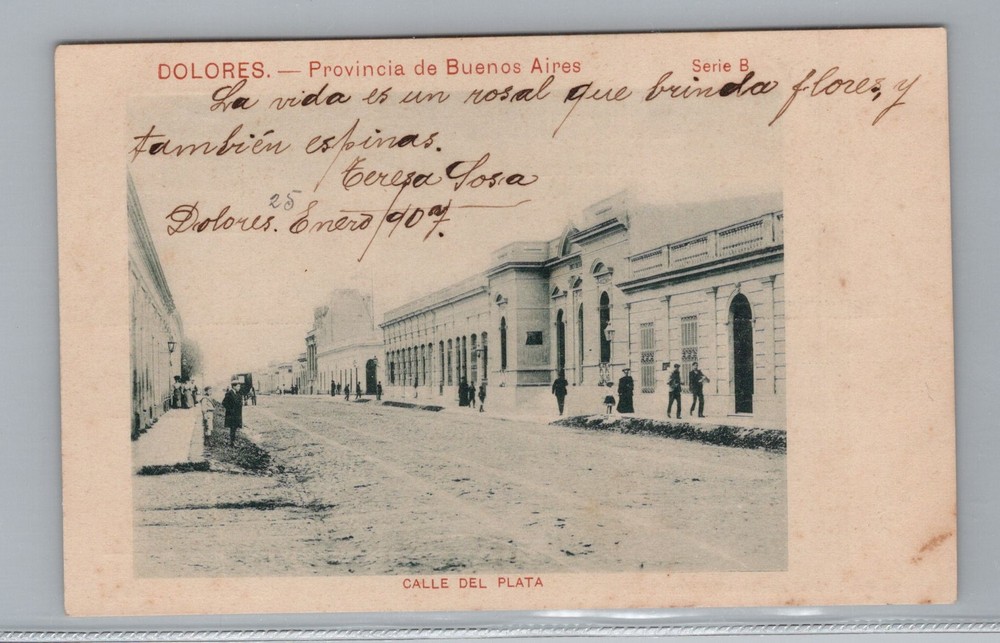 DOLORES. — Provincia de Buenos Aires Serie B
La vida es un rosal que brinda flores, y
también espinas.
Teresa Sosa
25
Dolores. Enero 907.
CALLE DEL PLATA